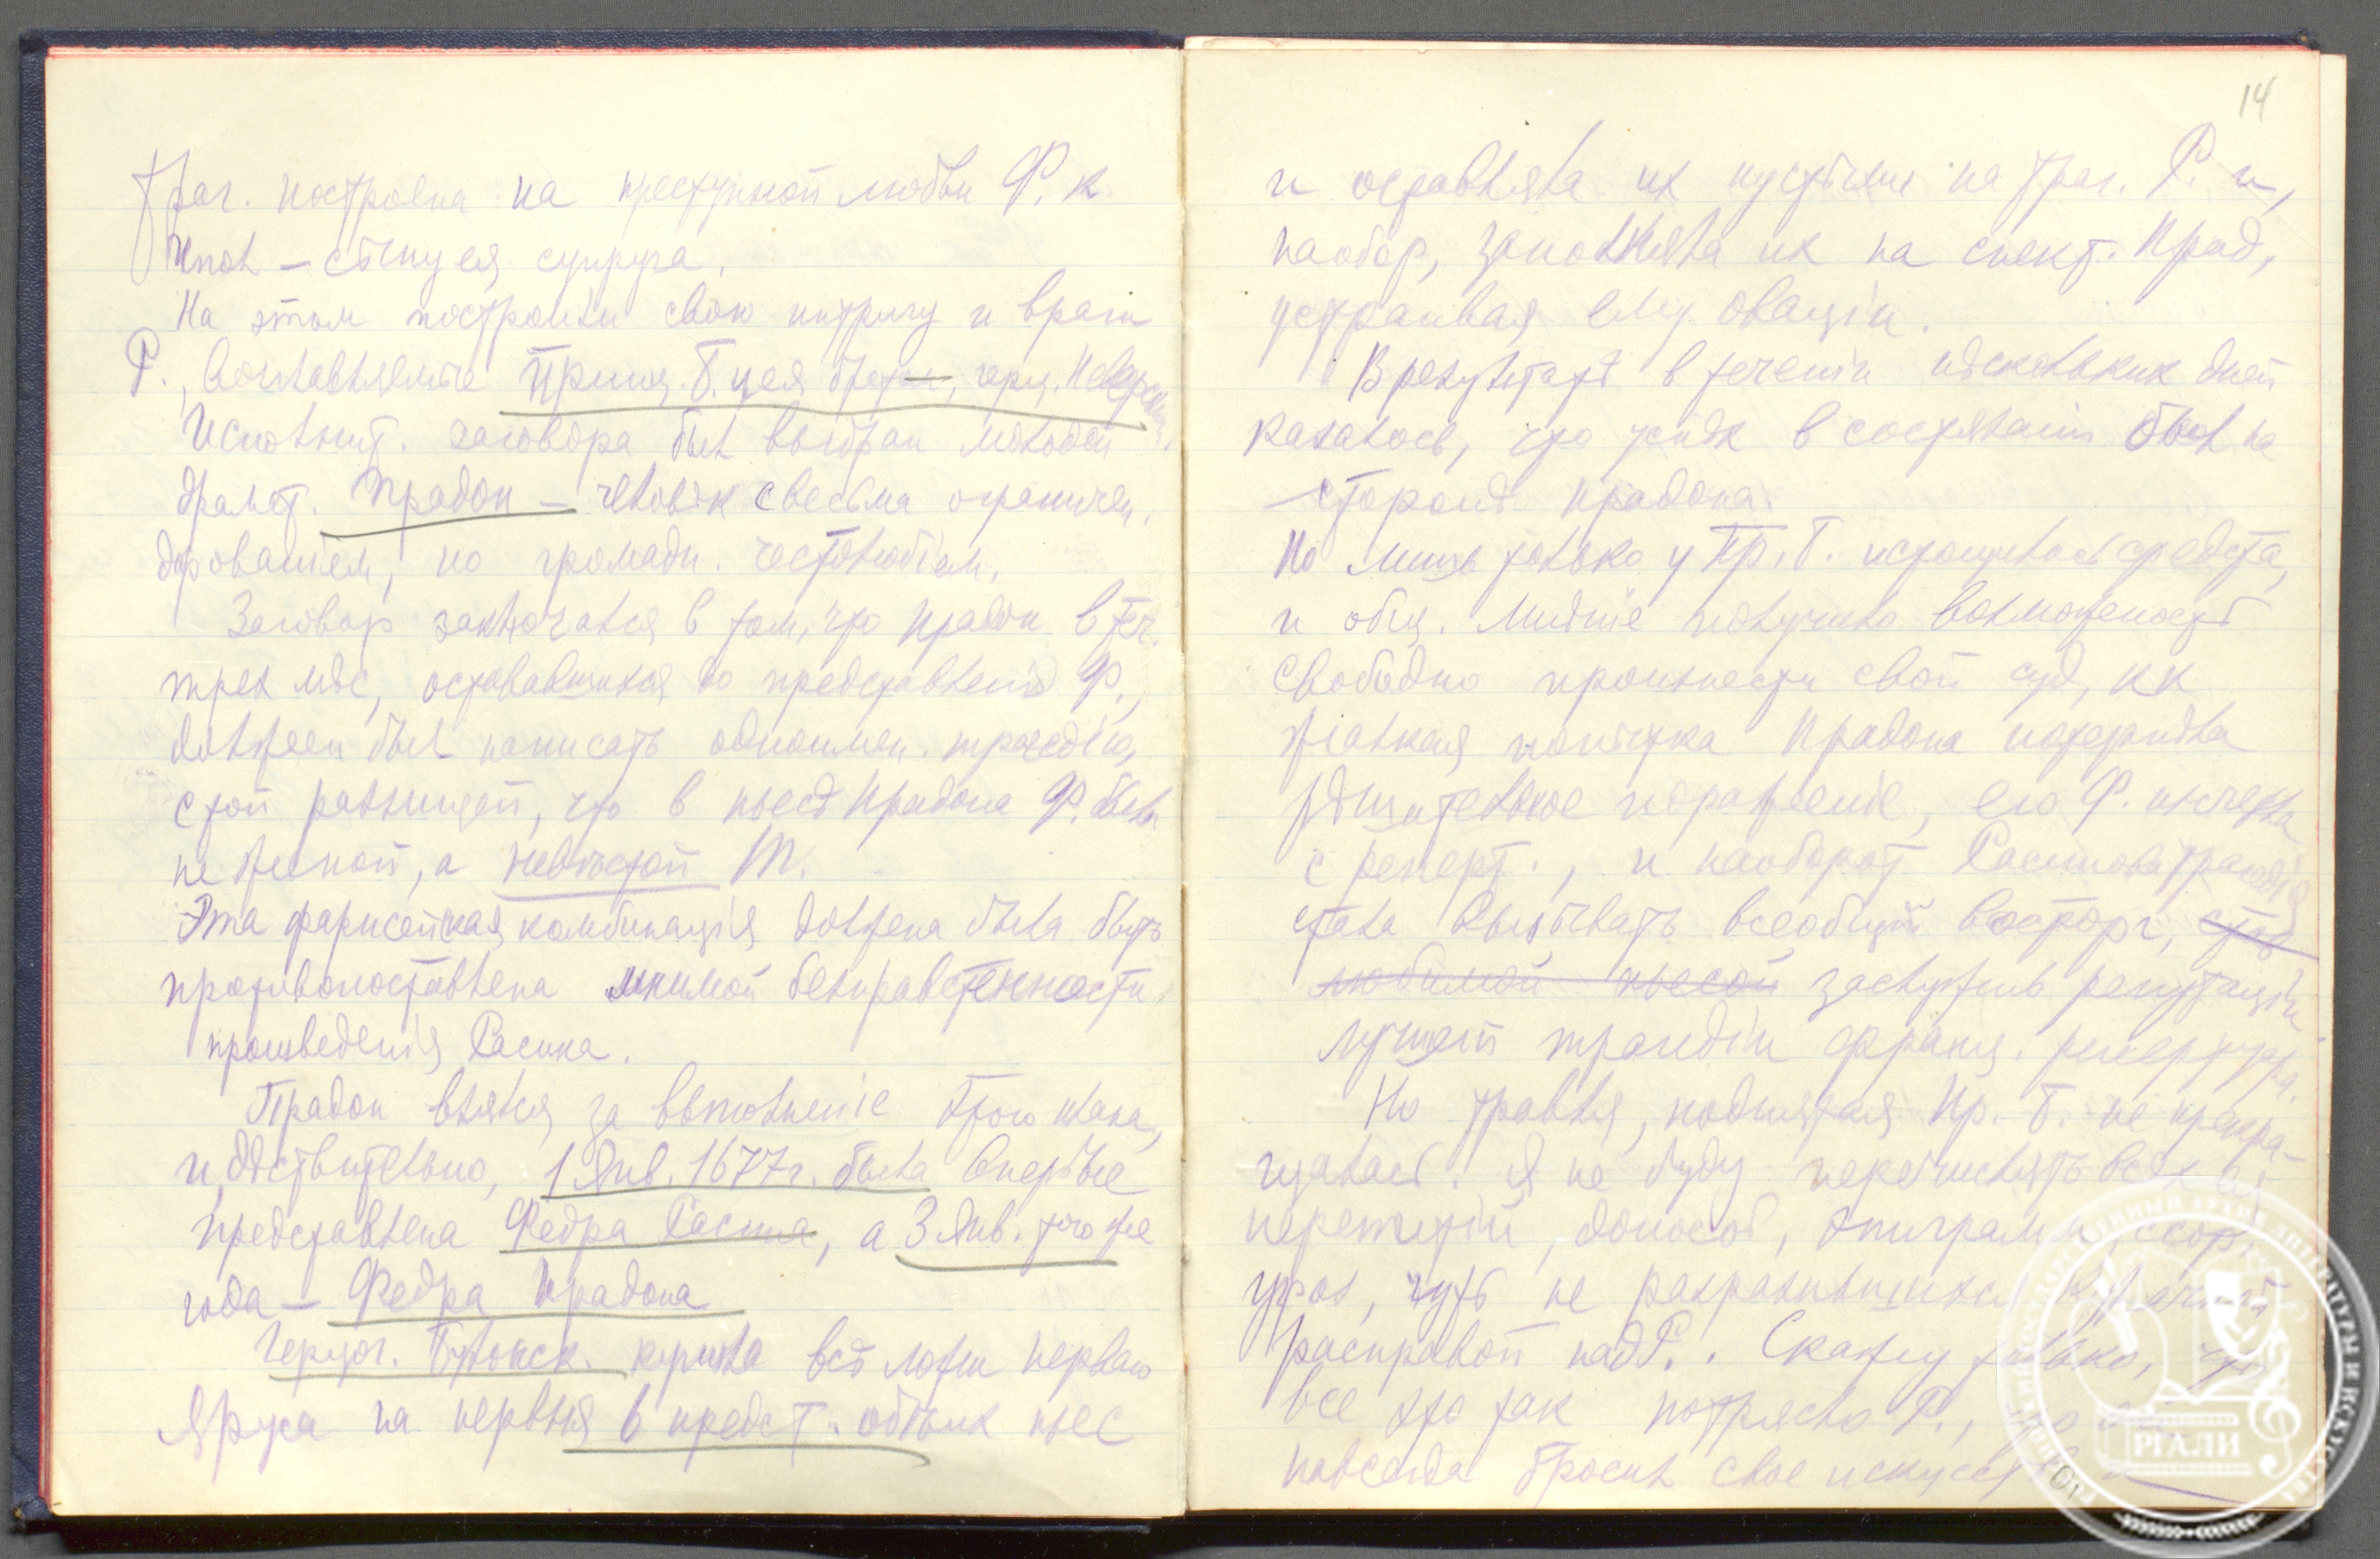 Траг. построена на преступной любви Ф. к
Ипол – сыну ея супруга.
На этом построили свою интригу и враги
Р., возглавляемые Принц. Б. и ея братом, герц. Неверским.
Исполнит. заговора был выбран молодой
драмат. Прадон – человѣк с весьма ограничен.
дарованiем, но громадн. честолюбiем.
Заговор заключался в том, что Прадон в теч.
трех мѣс, остававшихся до представленiя Ф.,
должен был написать одноимен. трагедiю,
с той разницей, что в пьесѣ Прадона Ф. была
не женой, а невѣстой Т.
Эта фарисейская комбинацiя должна была быть
противопоставлена мнимой безнравственности
произведенiя Расина.
Прадон взялся за выполненiе этого плана,
и, дѣствительно, 1 Янв. 1677 г. была впервые
представлена Федра Расина, а 3 Янв. того же
года – Федра Прадона
Герцог. Бульонск. купила всѣ ложи перваго
яруса на первыя 6 предст. обѣих пьес
14
и оставляла их пустыми на траг. Р. и,
наобор, заполняла их на спект. Прад,
устраивая ему овацiи.
В результатѣ в теченiи нѣскольких дней
казалось, что успѣх в состязанiи был на
сторонѣ Прадона.
Но лишь только у Пр. Б. истощились средства,
и общ. мнѣнiе получило возможность
свободно произнести свой суд, кк
жалкая попытка Прадона потерпѣла
рѣшительное пораженiе, его Ф. исчезла
с реперт., и наоборот Расинова трагедiя
стала вызывать всеобщiй восторг, став
любимой пьесой заслужив репутацiи
лучшей трагедiи франц. репертуара.
Но травля, поднятая Пр. Б. не прекра-
щалась. Я не буду перечислять всех ея
перипетiй, доносов, эпиграмм, ссор,
угроз, чуть не разразившихся
расправой над Р.. Скажу только, что
все это так потрясло Р., что
навсегда бросил свое искусс
РГАЛИ